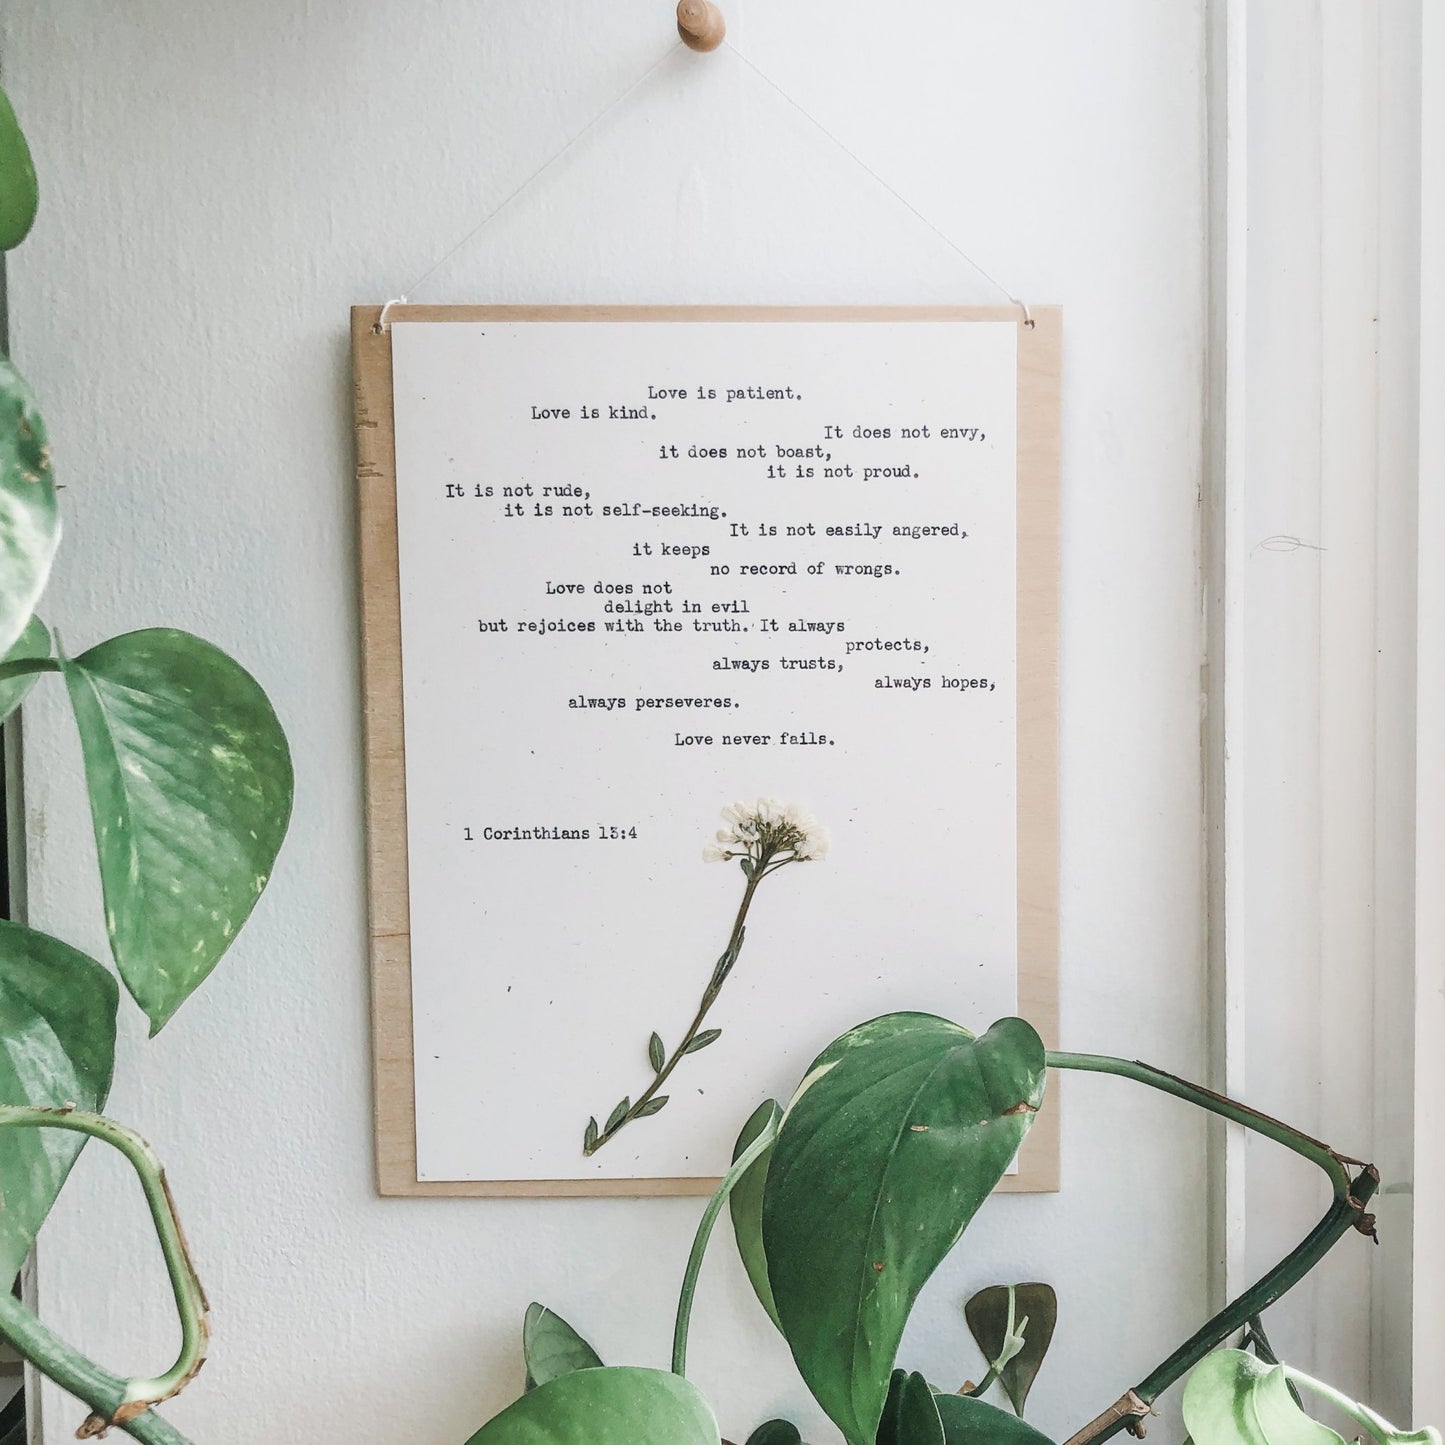 Love is patient.
Love is kind.
It does not envy,
it does not boast,
it is not proud.
It is not rude,
it is not self-seeking.
It is not easily angered,
it keeps
no record of wrongs.
Love does not
delight in evil
but rejoices with the truth. It always
protects,
always trusts,
always hopes,
always perseveres.
Love never fails.
1 Corinthians 13:4